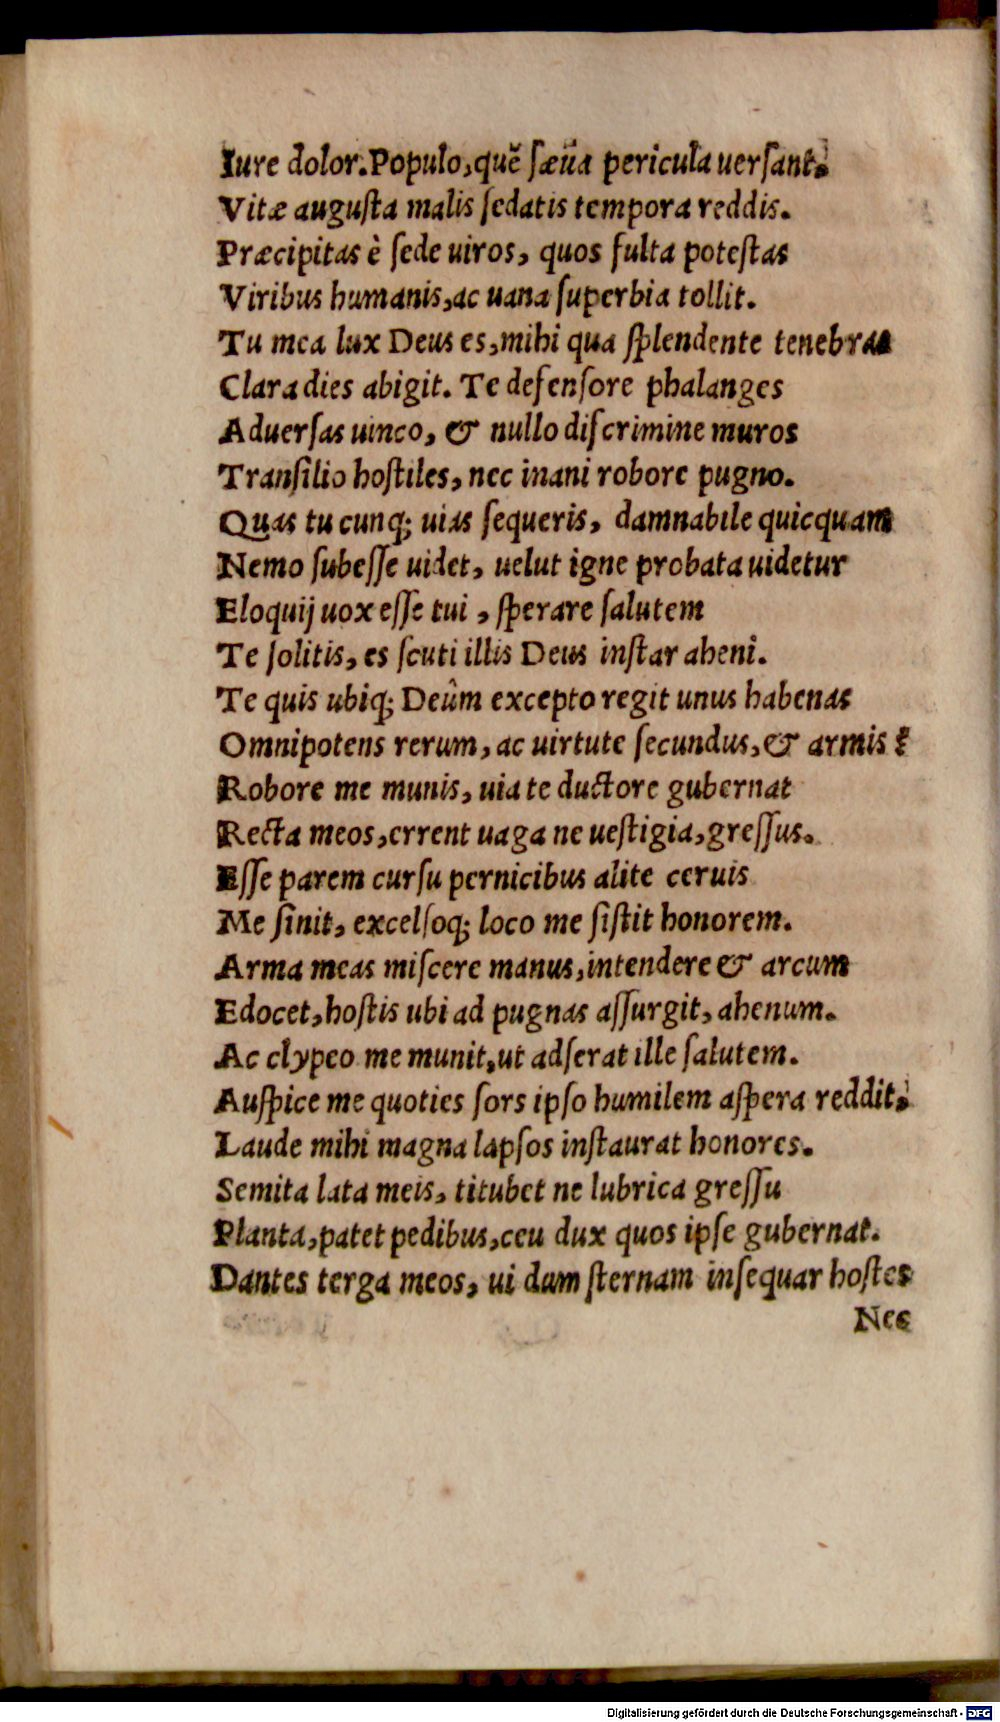 Iure dolor. Populo, quẽ sæua pericula uersant,
Vitæ augusta malis sedatis tempora reddis.
Præcipitas è sede uiros, quos fulta potestas
Viribus humanis, ac uana superbia tollit.
Tu mea lux Deus es, mihi qua splendente tenebras
Clara dies abigit. Te defensore phalanges
Aduersas uinco, & nullo discrimine muros
Transilio hostiles, nec inani robore pugno.
Quas tu cunq; uias sequeris, damnabile quicquam
Nemo subesse uidet, uelut igne probata uidetur
Eloquij uox esse tui, sperare salutem
Te solitis, es scuti illis Deus instar aheni.
Te quis ubiq; Deûm excepto regit unus habenas
Omnipotens rerum, ac uirtute secundus, & armis?
Robore me munis, uia te ductore gubernat
Recta meos, errent uaga ne uestigia, gressus.
Esse parem cursu pernicibus alite ceruis
Me sinit, excelsoq; loco me sistit honorem.
Arma meas miscere manus, intendere & arcum
Edocet, hostis ubi ad pugnas assurgit, ahenum.
Ac clypeo me munit, ut adserat ille salutem.
Auspice me quoties sors ipso humilem aspera reddit,
Laude mihi magna lapsos instaurat honores.
Semita lata meis, titubet ne lubrica gressu
Planta, patet pedibus, ceu dux quos ipse gubernat.
Dantes terga meos, ui dum sternam insequar hostes
Nec
Digitalisierung gefördert durch die Deutsche Forschungsgemeinschaft - DFG